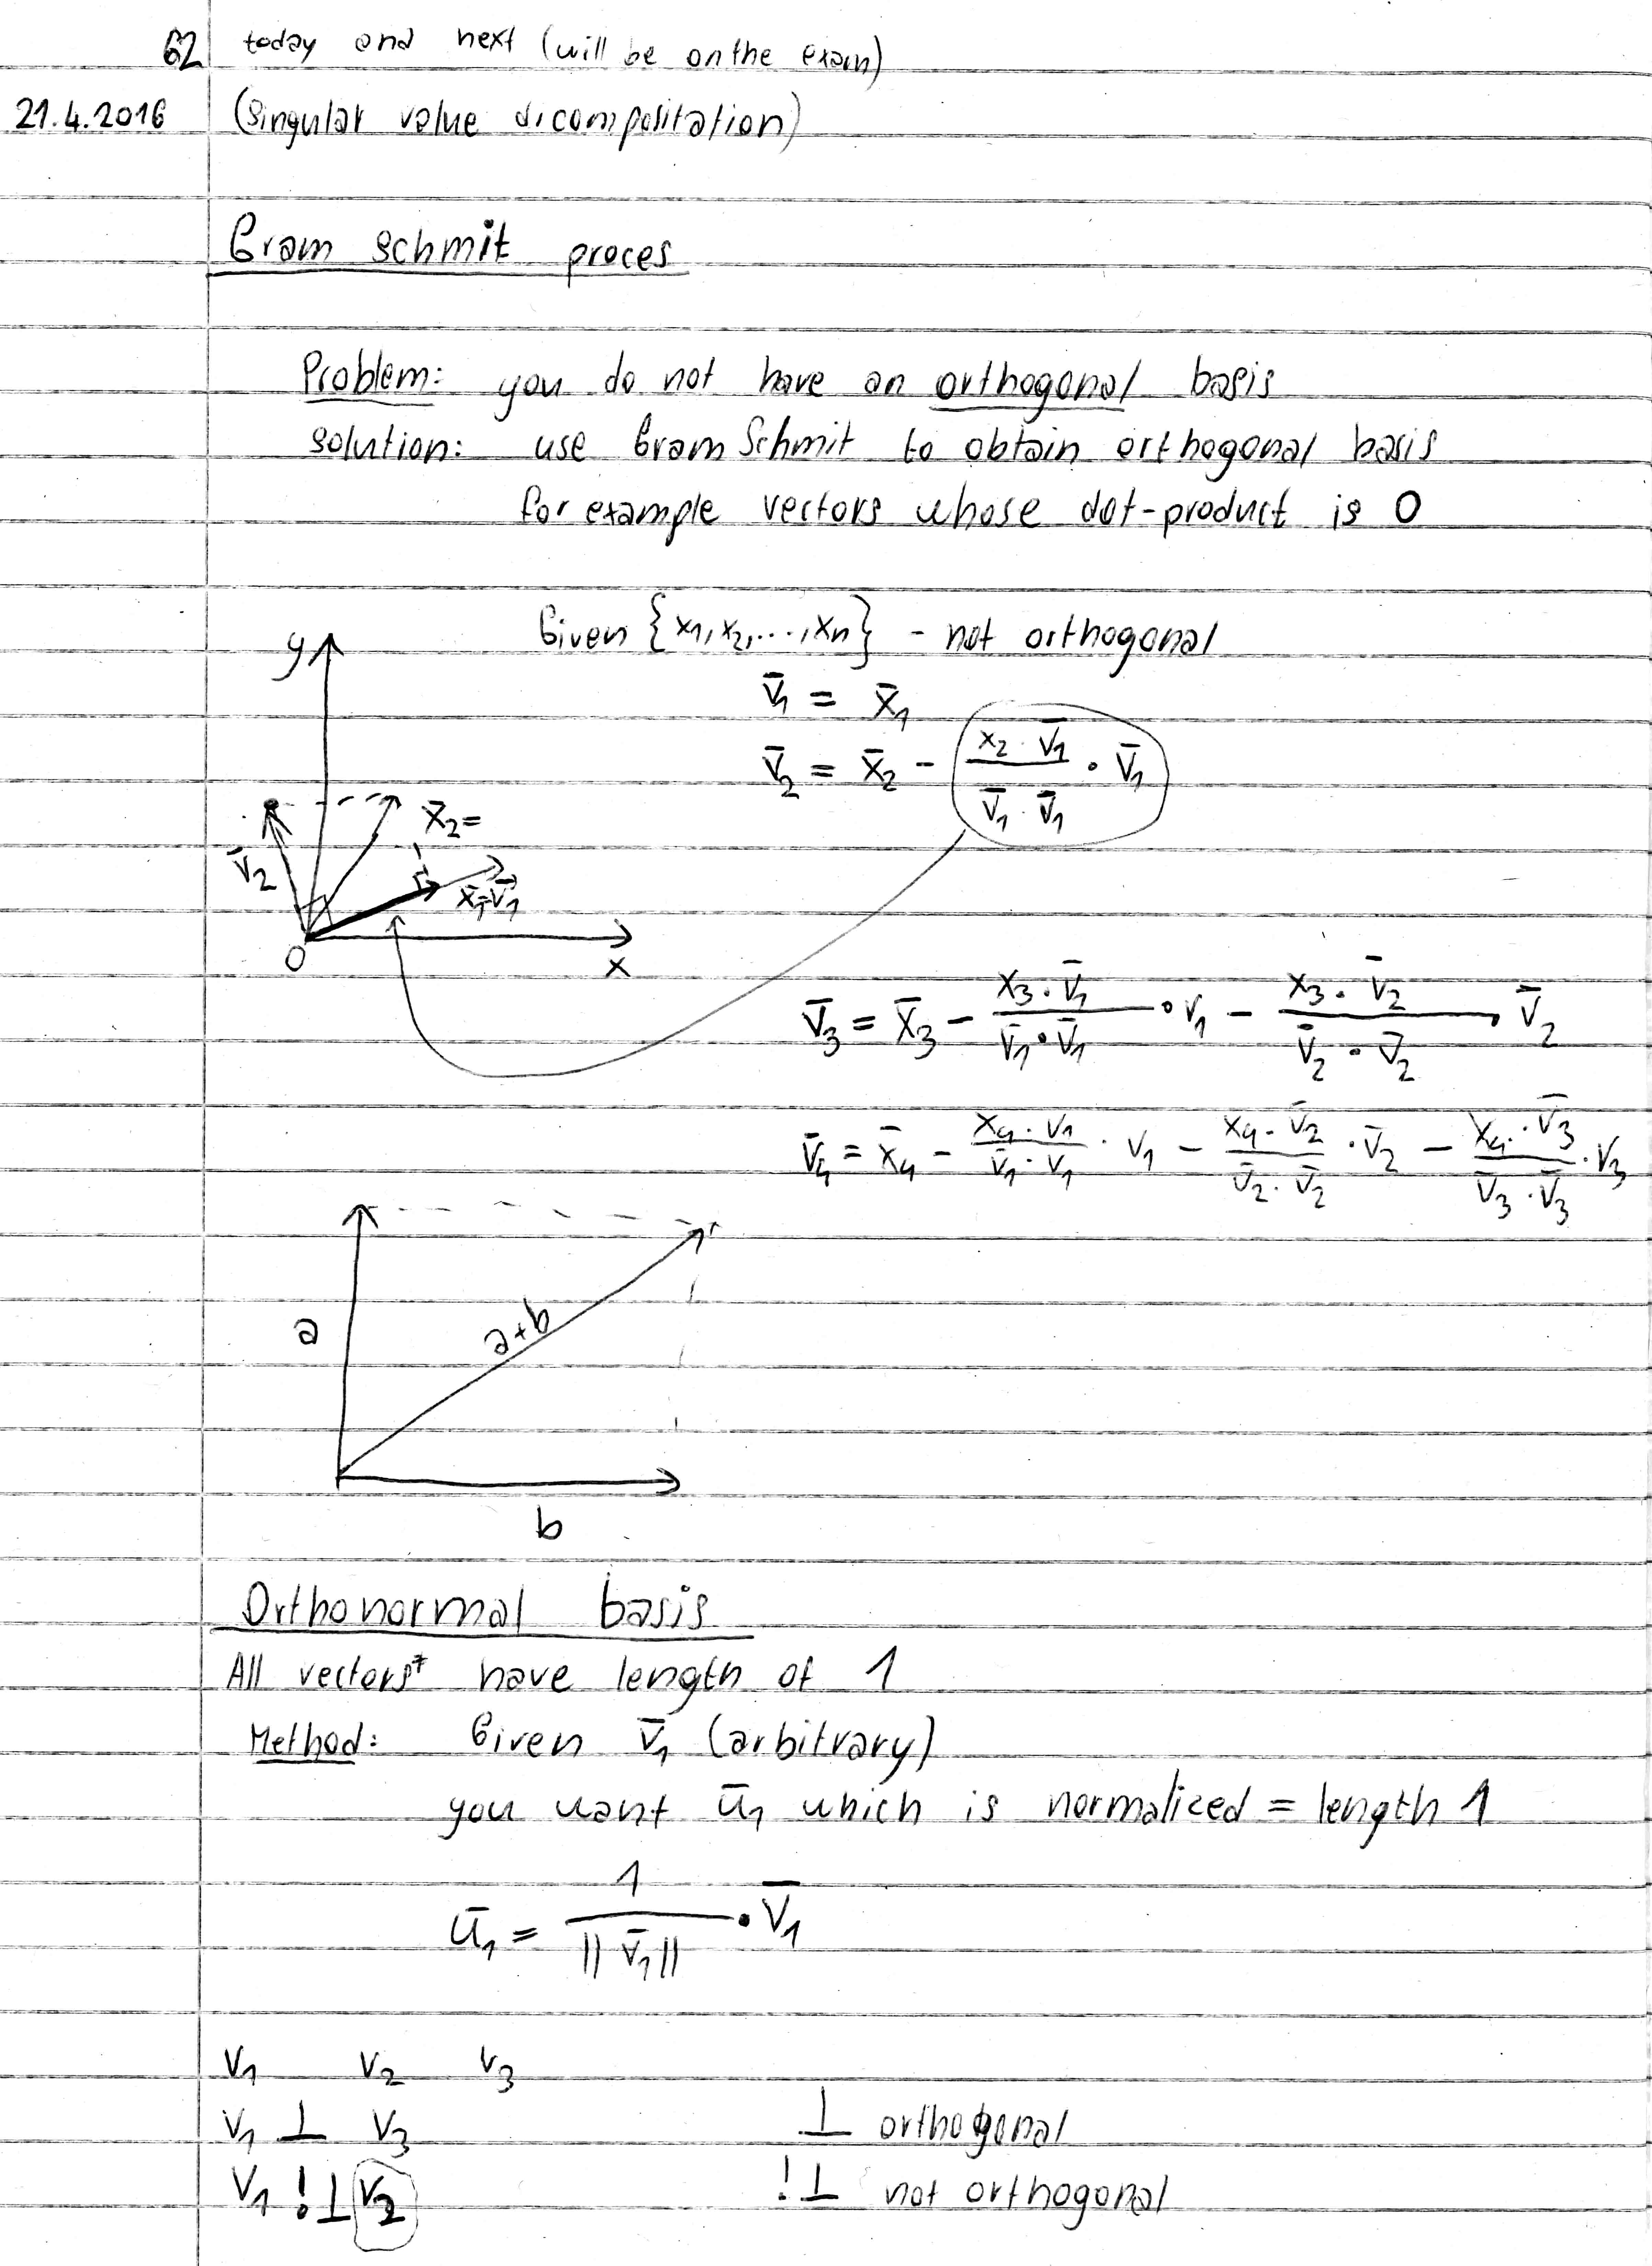 62 today and next (will be on the exam)
21.4.2016 (Singular value dicompositation)
Gram schmit proces
Problem: you do not have an orthogonal basis
solution: use Gram Schmit to obtain orthogonal basis
for example vectors whose dot-product is 0
Given {x₁, x₂, ..., xn} - not orthogonal
v̄₁ = x̄₁
v̄₂ = x̄₂ - (x₂ · v̄₁)/(v̄₁ · v̄₁) · v̄₁
y
x̄₂ =
v̄₂
x̄₁=v̄₁
0
x
v̄₃ = x̄₃ - (x₃ · v̄₁)/(v̄₁ · v̄₁) · v₁ - (x₃ · v̄₂)/(v̄₂ · v̄₂) · v̄₂
v̄₄ = x̄₄ - (x₄ · v₁)/(v̄₁ · v₁) · v₁ - (x₄ · v̄₂)/(v̄₂ · v̄₂) · v̄₂ - (x₄ · v̄₃)/(v̄₃ · v̄₃) · v₃
a
a+b
b
Orthonormal basis
All vectors have length of 1
Method: Given v̄₁ (arbitrary)
you want ū₁ which is normalized = length 1
ū₁ = 1/||v̄₁|| · v̄₁
v₁ v₂ v₃
v₁ ⊥ v₃ ⊥ orthogonal
v₁ !⊥ v₂ !⊥ not orthogonal